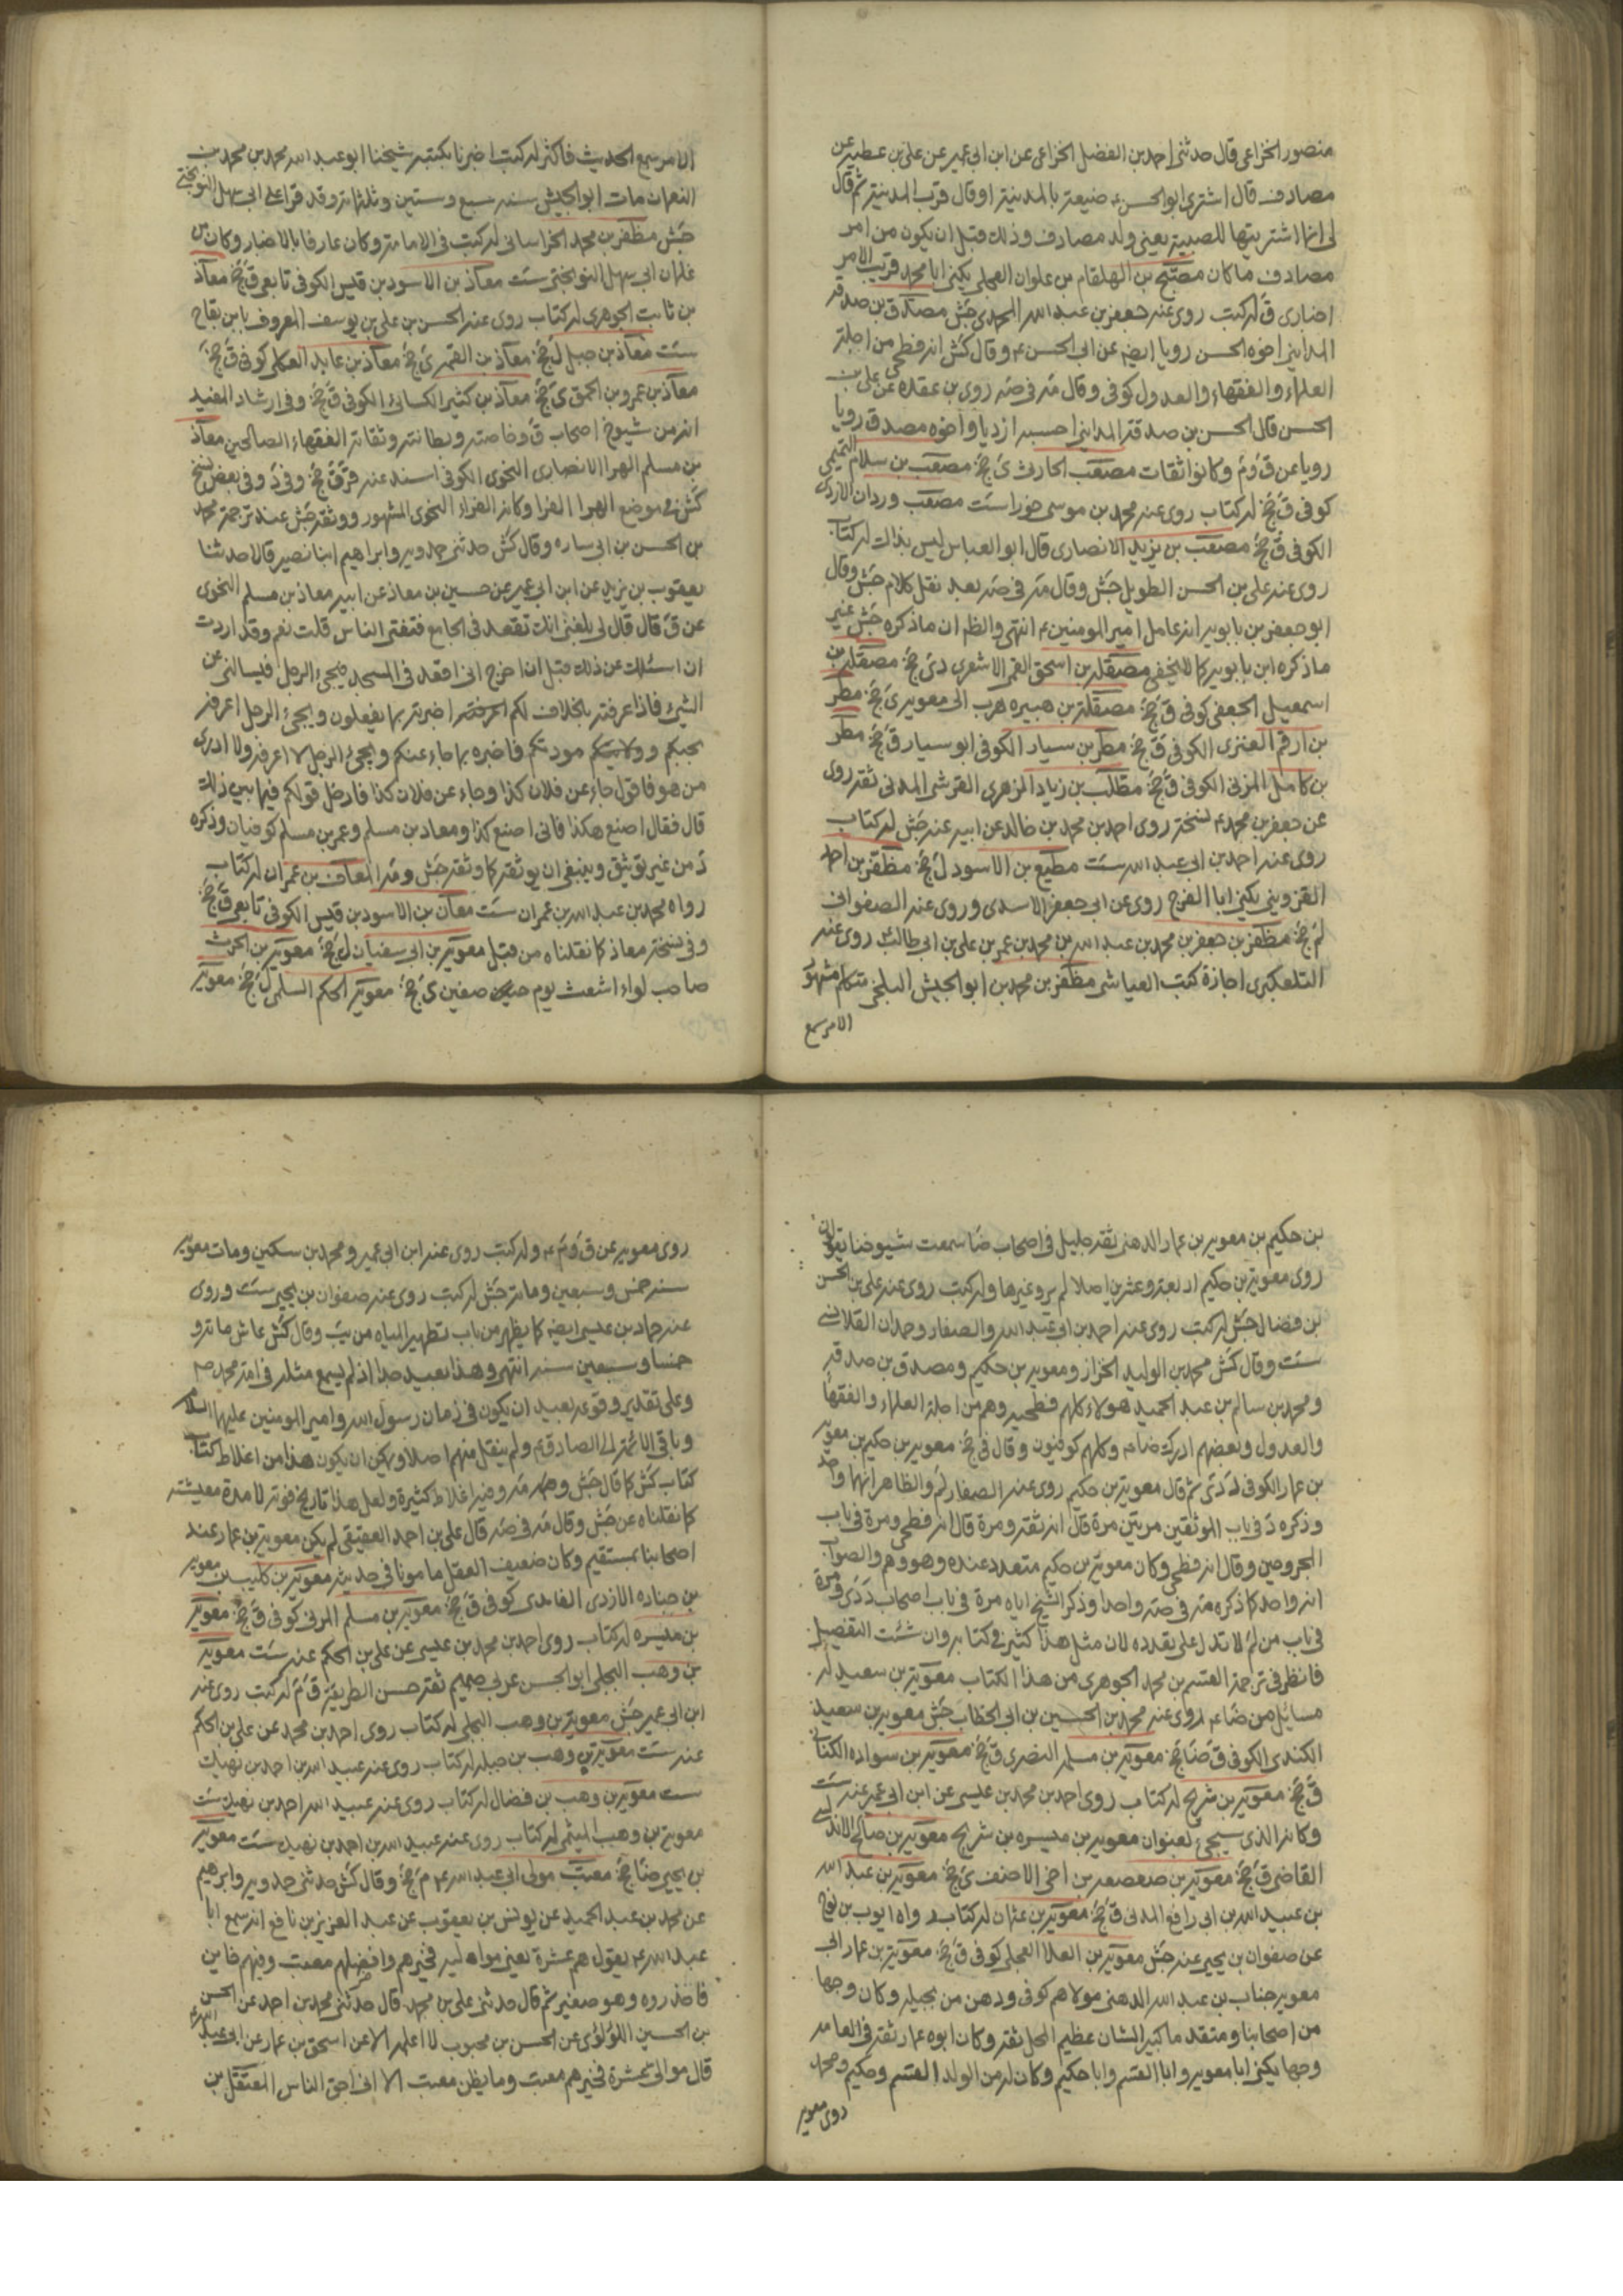 منصور الخزاعى قال حدثنى احمد بن الفضل الخزاعى عن ابن ابى عمير عن على بن عطيه عن
مصادف قال اشترى ابو الحسن ع ضيعة بالمدينة او قال قرب المدينة ثم قال
لى انما اشتريتها للصبية يعنى ولد مصادف وذلك قبل ان يكون من امر
مصادف ما كان مصبح بن الهلقام بن علوان العجلى يكنى ابا محمد قريب الامر
اخبارى ق له كتب روى عنه جعفر بن عبد الله المحمدى جش مصدق بن صدقه
المداينى اخوه الحسن رويا ايضه عن ابى الحسن ع وقال كش انه فطحى من اجلة
العلماء والفقهاء والعدول كوفى وقال مه فى صه روى بن عقده عن على بن
الحسن قال الحسن بن صدقة المداينى احسبه ازديا واخوه مصدق رويا
رويا عن ق وم وكانوا ثقات مصعب الحارث ى جخ مصعب بن سلام التميمى
كوفى ق جخ له كتاب روى عنه محمد بن موسى خوراء ست مصعب وردان الازدى
الكوفى ق جخ مصعب بن يزيد الانصارى قال ابو العباس ليس بذاك له كتاب
روى عنه على بن الحسن الطويل جش وقال مه فى صه بعد نقل كلام جش وقال
ابو جعفر بن بابويه انه عامل امير المومنين ع انتهى والظه ان ما ذكره جش غير
ما ذكره ابن بابويه كما لا يخفى مصقله بن اسحق القمى الاشعرى دى جخ مصقله بن
اسمعيل الجعفى كوفى ق جخ مصقلة بن هبيره هرب الى معويه ى جخ مطر
بن ارقم العنزى الكوفى ق جخ مطر بن سيار الكوفى ابو سيار ق جخ مطر
بن كامل المزنى الكوفى ق جخ مطلب بن زياد الزهرى القرشى المدنى ثقه روى
عن جعفر بن محمد ع نسخة روى احمد بن محمد بن خالد عن ابيه عنه جش له كتاب
روى عنه احمد بن ابى عبد الله ست مطيع بن الاسود ل جخ مظفر بن احمد
القزوينى يكنى ابا الفرج روى عن ابى جعفر الاسدى وروى عنه الصفوانى
لم جخ مظفر بن جعفر بن محمد بن عبد الله بن محمد بن عمر بن على بن ابى طالب ع روى عنه
التلعكبرى اجازة كتب العياشى مظفر بن محمد بن ابو الجيش البلخى متكلم مشهور
الامر سمع
الامر سمع الحديث فاكثر له كتب اخبرنا بكتبه شيخنا ابو عبد الله محمد بن محمد بن
النعمان مات ابو الجيش سنه سبع وستين وثلثمائة وقد قرا على ابى سهل النوبختى
جش مظفر بن محمد الخراسانى له كتب فى الامامة وكان عارفا بالاخبار وكان من
غلمان ابى سهل النوبختى ست معاذ بن الاسود بن قيس الكوفى تابعى ق جخ معاذ
بن ثابت الجوهرى له كتاب روى عنه الحسن بن على بن يوسف المعروف بابن بقاح
ست معاذ بن جبل ل جخ معاذ بن القمه ى جخ معاذ بن عابد العكلى كوفى ق جخ
معاذ بن عمرو بن الحمق ى جخ معاذ بن كثير الكسائى الكوفى ق جخ وفى ارشاد المفيد
انه من شيوخ اصحاب ق وخاصته وبطانته وثقاته الفقهاء الصالحين معاذ
بن مسلم الهراء الانصارى النحوى الكوفى اسند عنه قر ق جخ وفى د وفى بعض نسخ
كش فى موضع الهرا الفرا وكانه الفراء النحوى المشهور ووثقه جش عند ترجمة محمد
بن الحسن بن ابى ساره وقال كش حدثنى حمدويه وابراهيم ابنا نصير قالا حدثنا
يعقوب بن يزيد عن ابن ابى عمير عن حسين بن معاذ عن ابيه معاذ بن مسلم النحوى
عن ق قال قال لى بلغنى انك تقعد فى الجامع فتفتى الناس قلت نعم وقد اردت
ان اسئلك عن ذلك قبل ان اخرج انى اقعد فى المسجد فيجئ الرجل فيسالنى عن
الشئ فاذا عرفته بالخلاف لكم اخبرته بما يفعلون ويجئ الرجل اعرفه
بحبكم ومودتكم فاخبره بما جاء عنكم ويجئ الرجل لا اعرفه ولا ادرى
من هو فاقول جاء عن فلان كذا وجاء عن فلان كذا فادخل قولكم فيما بين ذلك
قال فقال اصنع هكذا فانى اصنع كذا ومعاذ بن مسلم وعمر بن مسلم كوفيان وذكره
د من غير توثيق وينبغى ان يوثقه كما وثقه جش ومه المعافى بن عمران له كتاب
رواه محمد بن عبد الله بن عمران ست معان بن الاسود بن قيس الكوفى تابعى ق جخ
وفى نسخة معاذ كما نقلناه من قبل معوية بن ابى سفيان ل جخ معوية بن الحرث
صاحب لواء اشعث يوم صفين ى جخ معوية الحكم السلمى ل جخ معوية
بن حكيم بن معويه بن عمار الدهنى ثقه جليل فى اصحاب ضا سمعت شيوخنا يقولون
روى معوية بن حكيم اربعة وعشرين اصلا لم يرو غيرها وله كتب روى عنه على بن الحسن
بن فضال جش له كتب روى عنه احمد بن ابى عبد الله والصفار وحمدان القلانسى
ست وقال كش محمد بن الوليد الخزاز ومعويه بن حكيم ومصدق بن صدقه
ومحمد بن سالم بن عبد الحميد هولاء كلهم فطحيه وهم من اجلة العلماء والفقهاء
والعدول وبعضهم ادرك ضا ع وكلهم كوفيون وقال فى جخ معويه بن حكيم بن معويه
بن عمار الكوفى د دى ثم قال معوية بن حكيم روى عنه الصفار لم والظاهر انهما واحد
وذكره د فى باب الموثقين مرتين مرة قال انه ثقه ومرة قال انه فطحى ومرة فى باب
المجروحين وقال انه فطحى وكان معوية بن حكيم متعدد عنده وهو وهم والصواب
انه واحد كما ذكره مه فى صه واحدا وذكر الشيخ اياه مرة فى باب اصحاب د دى ومرة
فى باب من لم لا تدل على تعدده لان مثل هذا كثير فى كتابه وان شئت التفصيل
فانظر فى ترجمة القسم بن محمد الجوهرى من هذا الكتاب معوية بن سعيد له
مسائل من ضا ع روى عنه محمد بن الحسين بن ابى الخطاب جش معويه بن سعيد
الكندى الكوفى ق ضا جخ معوية بن سلمه النصرى ق جخ معويه بن سواده الكنانى
ق جخ معوية بن شريح له كتاب روى احمد بن محمد بن عيسى عن ابن ابى عمير عنه ست
وكانه الذى سيجئ بعنوان معويه بن ميسره بن شريح معويه بن صالح الاندلسى
القاضى ق جخ معوية بن صعصعه بن اخى الاحنف ى جخ معويه بن عبد الله
بن عبيد الله بن ابى رافع المدنى ق جخ معوية بن عثمان له كتاب رواه ايوب بن نوح
عن صفوان بن يحيى عنه جش معوية بن العلا العجلى كوفى ق جخ معوية بن عمار ابى
معويه خباب بن عبد الله الدهنى مولاهم كوفى ودهن من بجيله وكان وجها
من اصحابنا ومتقدما كبير الشان عظيم المحل ثقه وكان ابوه عمار ثقة فى العامه
وجها يكنى ابا معويه وابا القسم وابا حكيم وكان له من الولد القسم وحكيم ومحمد
روى معويه
روى معويه عن ق وم ع وله كتب روى عنه ابن ابى عمير ومحمد بن سكين ومات معويه
سنه خمس وسبعين ومائة جش له كتب روى عنه صفوان بن يحيى ست وروى
عنه حماد بن عيسى ايضه كما يظهر من باب تطهير المياه من يب وقال كش عاش مائة و
خمسا وسبعين سنه انتهى وهذا بعيد جدا اذ لم يسمع مثله فى امة محمد ص
وعلى تقدير وقوعه بعيد ان يكون فى زمان رسول الله وامير المومنين عليهما السلام
وباقى الائمة الى الصادق ع ولم ينقل منهم اصلا ويمكن ان يكون هذا من اغلاط كتاب
كتاب كش كما قال جش ومه فيه اغلاط كثيرة ولعل هذا تاريخ فوته لا مدة معيشته
كما نقلناه عن جش وقال مه فى صه قال على بن احمد العقيقى لم يكن معوية بن عمار عند
اصحابنا بمستقيم وكان ضعيف العقل مامونا فى حديثه معوية بن كليب معويه
بن جناده الازدى الغامدى كوفى ق جخ معوية بن مسلم المزنى كوفى ق جخ معوية
بن ميسره له كتاب روى احمد بن محمد بن عيسى عن على بن الحكم عنه ست معويه
بن وهب البجلى ابو الحسن عربى صميم ثقه حسن الطريقة ق م له كتب روى عنه
ابن ابى عمير جش معوية بن وهب البجلى له كتاب روى احمد بن محمد عن على بن الحكم
عنه ست معوية بن وهب بن جبله له كتاب روى عنه عبيد الله بن احمد بن نهيك
ست معوية بن وهب بن فضال له كتاب روى عنه عبيد الله احمد بن نهيك ست
معوية بن وهب الميثمى له كتاب روى عنه عبيد الله بن احمد بن نهيك ست معويه
بن يحيى ضا جخ معتب مولى ابى عبد الله ع م جخ وقال كش حدثنى حمدويه وابرهيم
عن محمد بن عبد الحميد عن يونس بن يعقوب عن عبد العزيز بن نافع انه سمع ابا
عبد الله ع يقول هم عشرة يعنى مواليه فخيرهم وافضلهم معتب وفيهم خاين
فاحذروه وهو صغير ثم قال حدثنى على بن محمد قال حدثنى محمد بن احمد عن الحسن
بن الحسين اللؤلؤى عن الحسن بن محبوب لا اعلمه الا عن اسحق بن عمار عن ابى عبد الله ع
قال موالى عشرة فخيرهم معتب وما يظن معتب الا انى احق الناس المعتقل بن